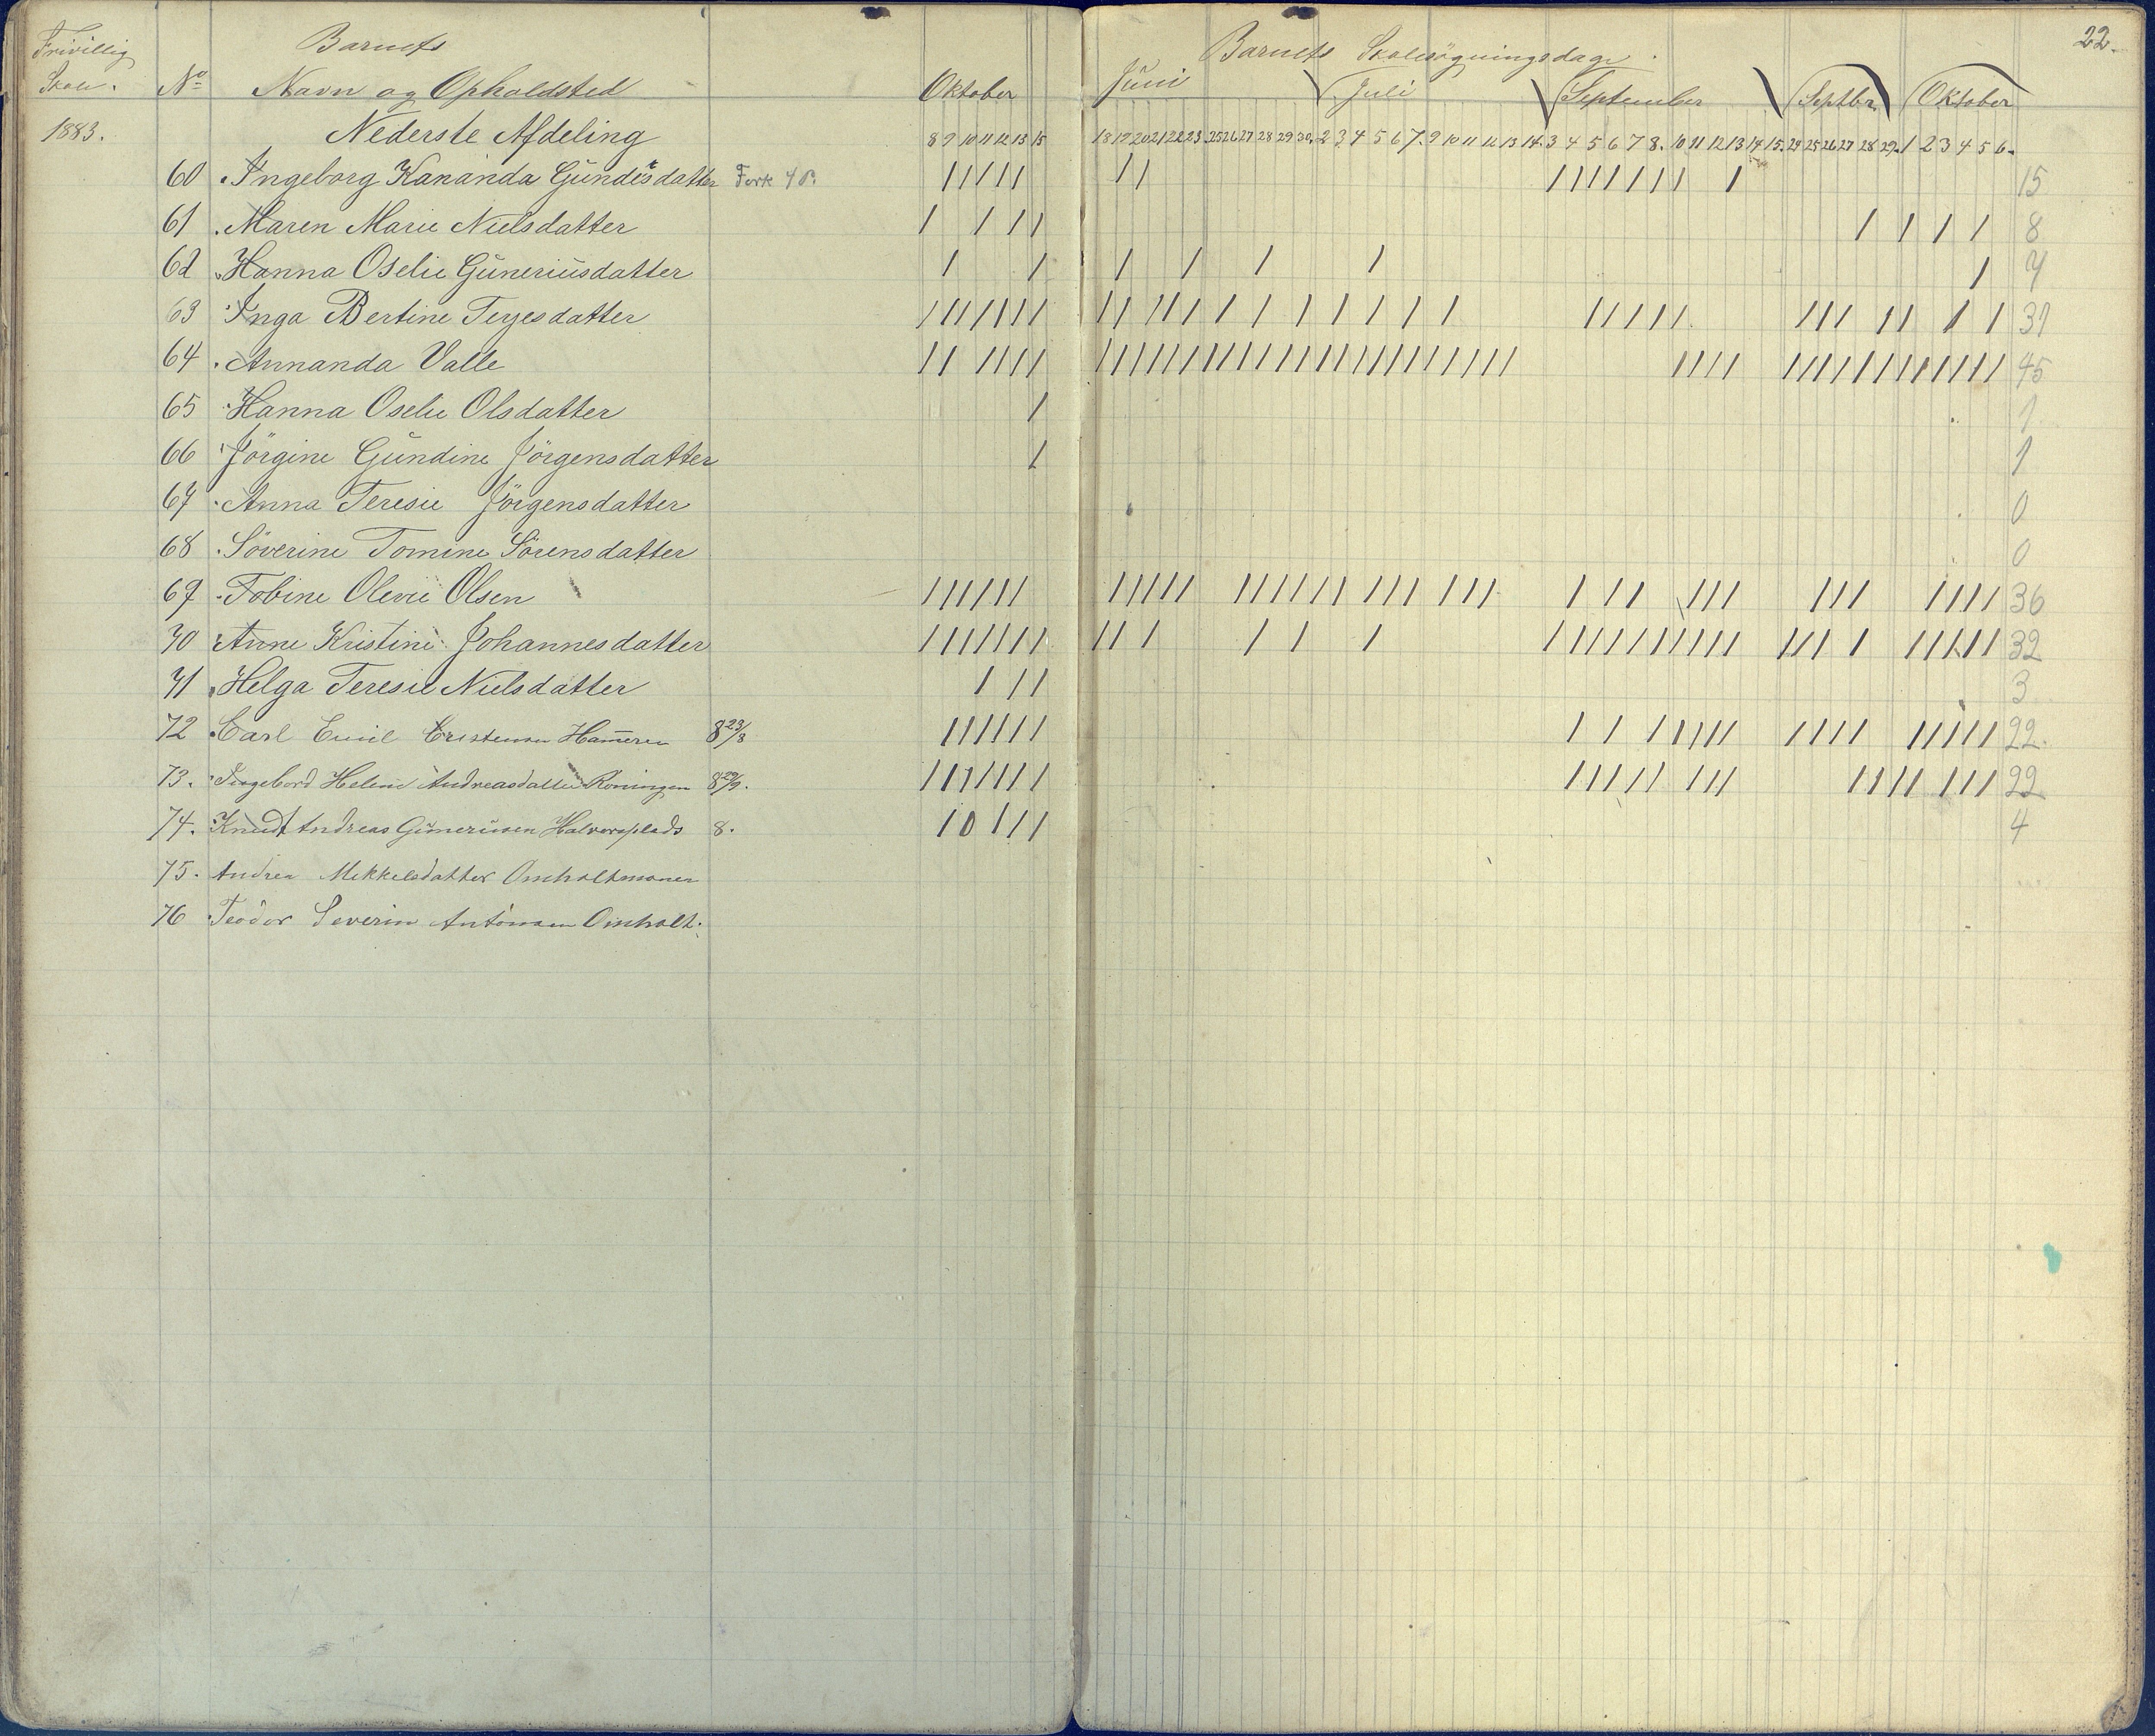 22.
Frivillig Skole. Barnets Barnets Skolesøgningsdage.
No Navn og Opholdsted Oktober Juni Juli September Septbr. Oktober
1883. Nederste Afdeling 8 9 10 11 12 13 15 18 19 20 21 22 23. 25 26 27 28 29 30. 2 3 4 5 6 7. 9 10 11 12 13 14. 3 4 5 6 7 8. 10 11 12 13 14 15. 24 25 26 27 28 29. 1 2 3 4 5 6.
60 Ingeborg Kananda Gündersdatter 15
61 Maren Marie Nielsdatter 8
62 Hanna Oselie Güneriüsdatter 7
63 Inga Bertine Terjesdatter 31
64 Annanda Valle 45
65 Hanna Oselie Olsdatter 1
66 Jörgine Gündine Jörgensdatter 1
67 Anna Teresie Jörgensdatter 0
68 Söverine Tomine Sörensdatter 0
69 Tobine Olevie Olsen 36
70 Anne Kristine Johannesdatter 32
71 Helga Teresie Nielsdatter 3
72 Carl Emil Cristensen Hammeren 8 23/8 22.
73. Ingebord Helene Andreasdatter Röningen 8 29/9. 22
74. Knudt Andreas Günerüsen Halvorsplads 8. 4
75. Andrea Mikkelsdatter Omholtmoner
76 Teodor Severin Antonsen Omholt.